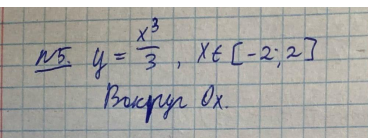 №5. y = x³/3, x ∈ [-2; 2]
Вокруг Ox.